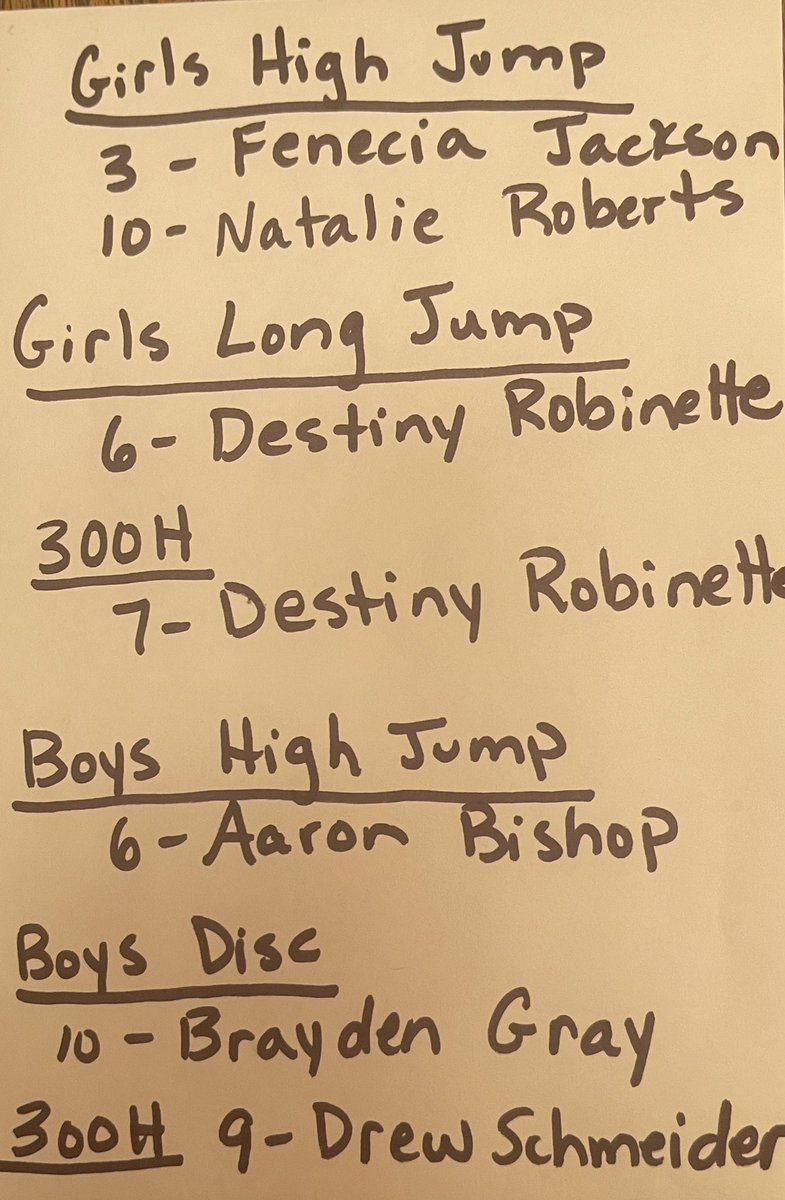 Girls High Jump
3 - Fenecia Jackson
10 - Natalie Roberts
Girls Long Jump
6 - Destiny Robinette
300H
7 - Destiny Robinette
Boys High Jump
6 - Aaron Bishop
Boys Disc
10 - Brayden Gray
300H 9 - Drew Schmeider